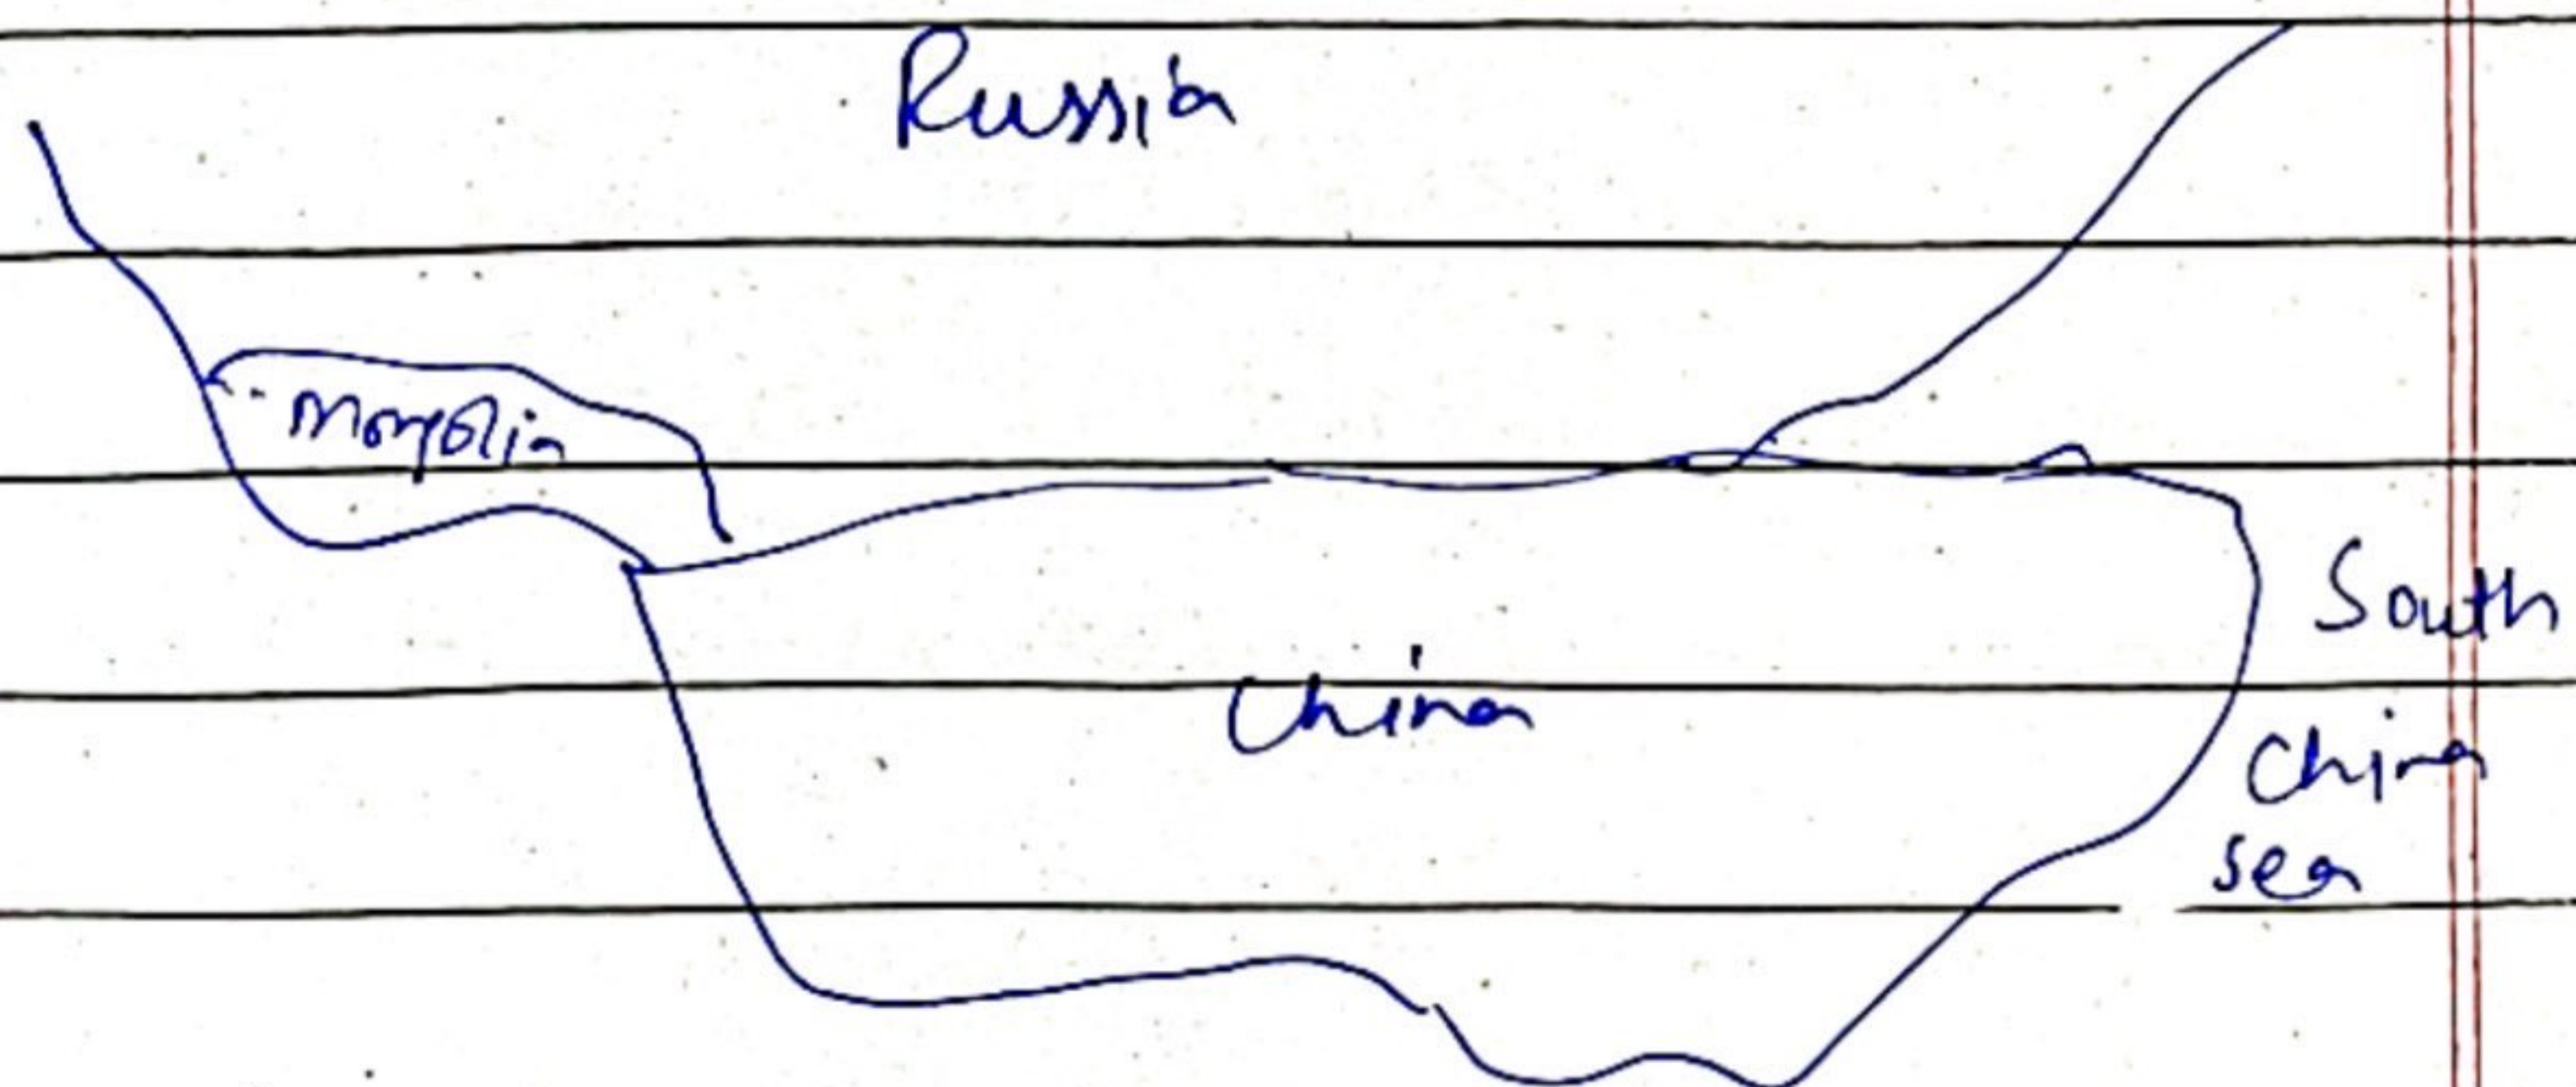 Russia
Mongolia
China
South
China
sea